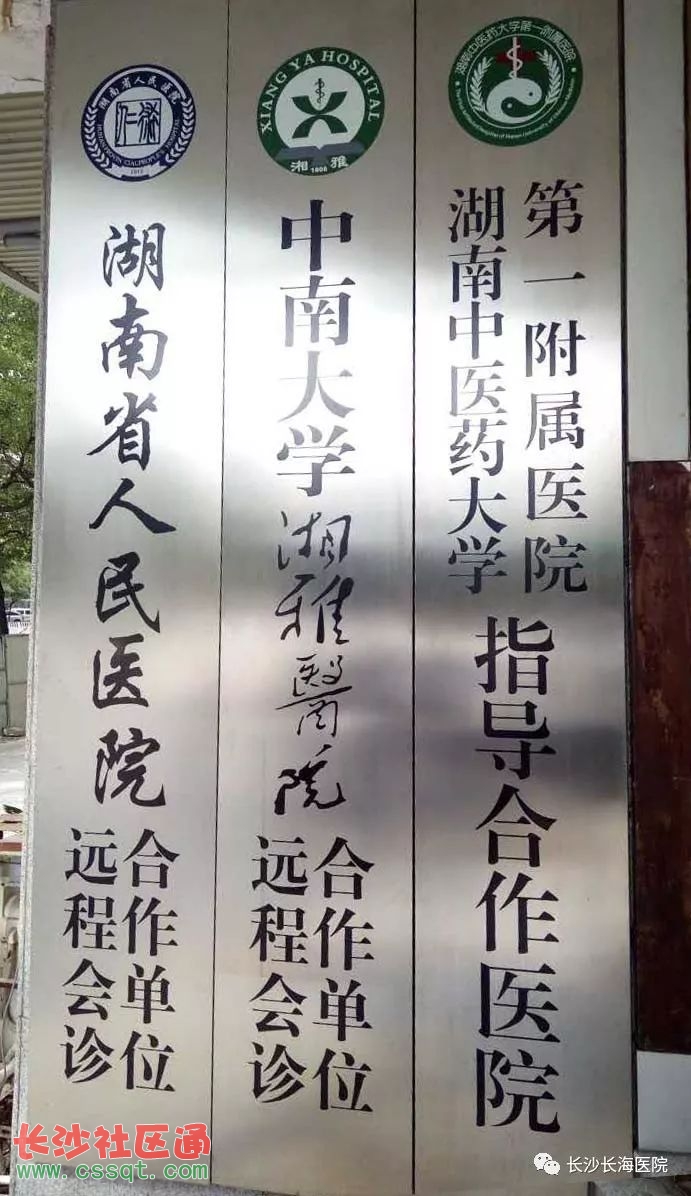 湖南省人民医院
仁术
HUNAN PROVINCIAL PEOPLE'S HOSPITAL
1912
湖南省人民医院
远程会诊
合作单位
XIANG YA HOSPITAL
湘雅
1906
中南大学
湘雅醫院
远程会诊
合作单位
湖南中医药大学第一附属医院
湖南中医药大学
第一附属医院
指导合作医院
长沙社区通
www.cssqt.com
长沙长海医院